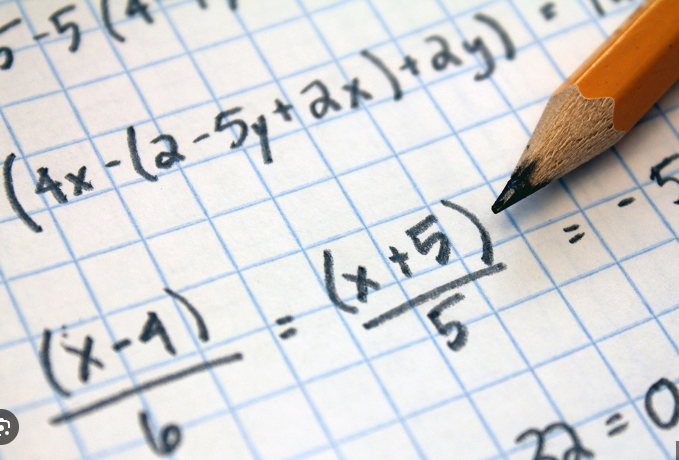 5-5(4
(4x-(2-5y+2x)+2y) =
(x-4)/6 = (x+5)/5 = - 5
32 = 0